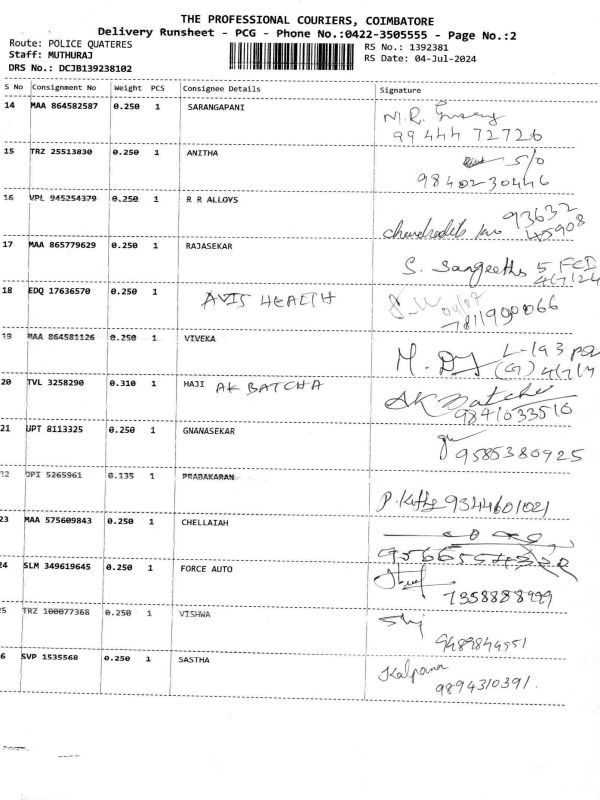 THE PROFESSIONAL COURIERS, COIMBATORE
Delivery Runsheet - PCG - Phone No.:0422-3505555 - Page No.:2
Route: POLICE QUATERES
RS No.: 1392381
Staff: MUTHURAJ
RS Date: 04-Jul-2024
DRS No.: DCJB139238102
S No Consignment No Weight PCS Consignee Details Signature
14 MAA 864582587 0.250 1 SARANGAPANI
M.R.
99444 72726
15 TRZ 25513830 0.250 1 ANITHA
S/O
98402-30446
16 VPL 945254379 0.250 1 R R ALLOYS
93632
45908
17 MAA 865779629 0.250 1 RAJASEKAR
S. Sangeetha
4/7/24
18 EDQ 17636570 0.250 1 AVIS HEALTH
04/07
7811900066
19 MAA 864581126 0.250 1 VIVEKA
4/7/24
20 TVL 3258290 0.310 1 HAJI AK BATCHA
AK Batcha
9841033510
21 UPT 8113325 0.250 1 GNANASEKAR
9585380925
22 OPI 5265961 0.135 1 PRABAKARAN
9344601021
23 MAA 575609843 0.250 1 CHELLAIAH
24 SLM 349619645 0.250 1 FORCE AUTO
7358888999
25 TRZ 100077368 0.250 1 VISHWA
9489844551
6 SVP 1535568 0.250 1 SASTHA
Kalpana
9894310391.